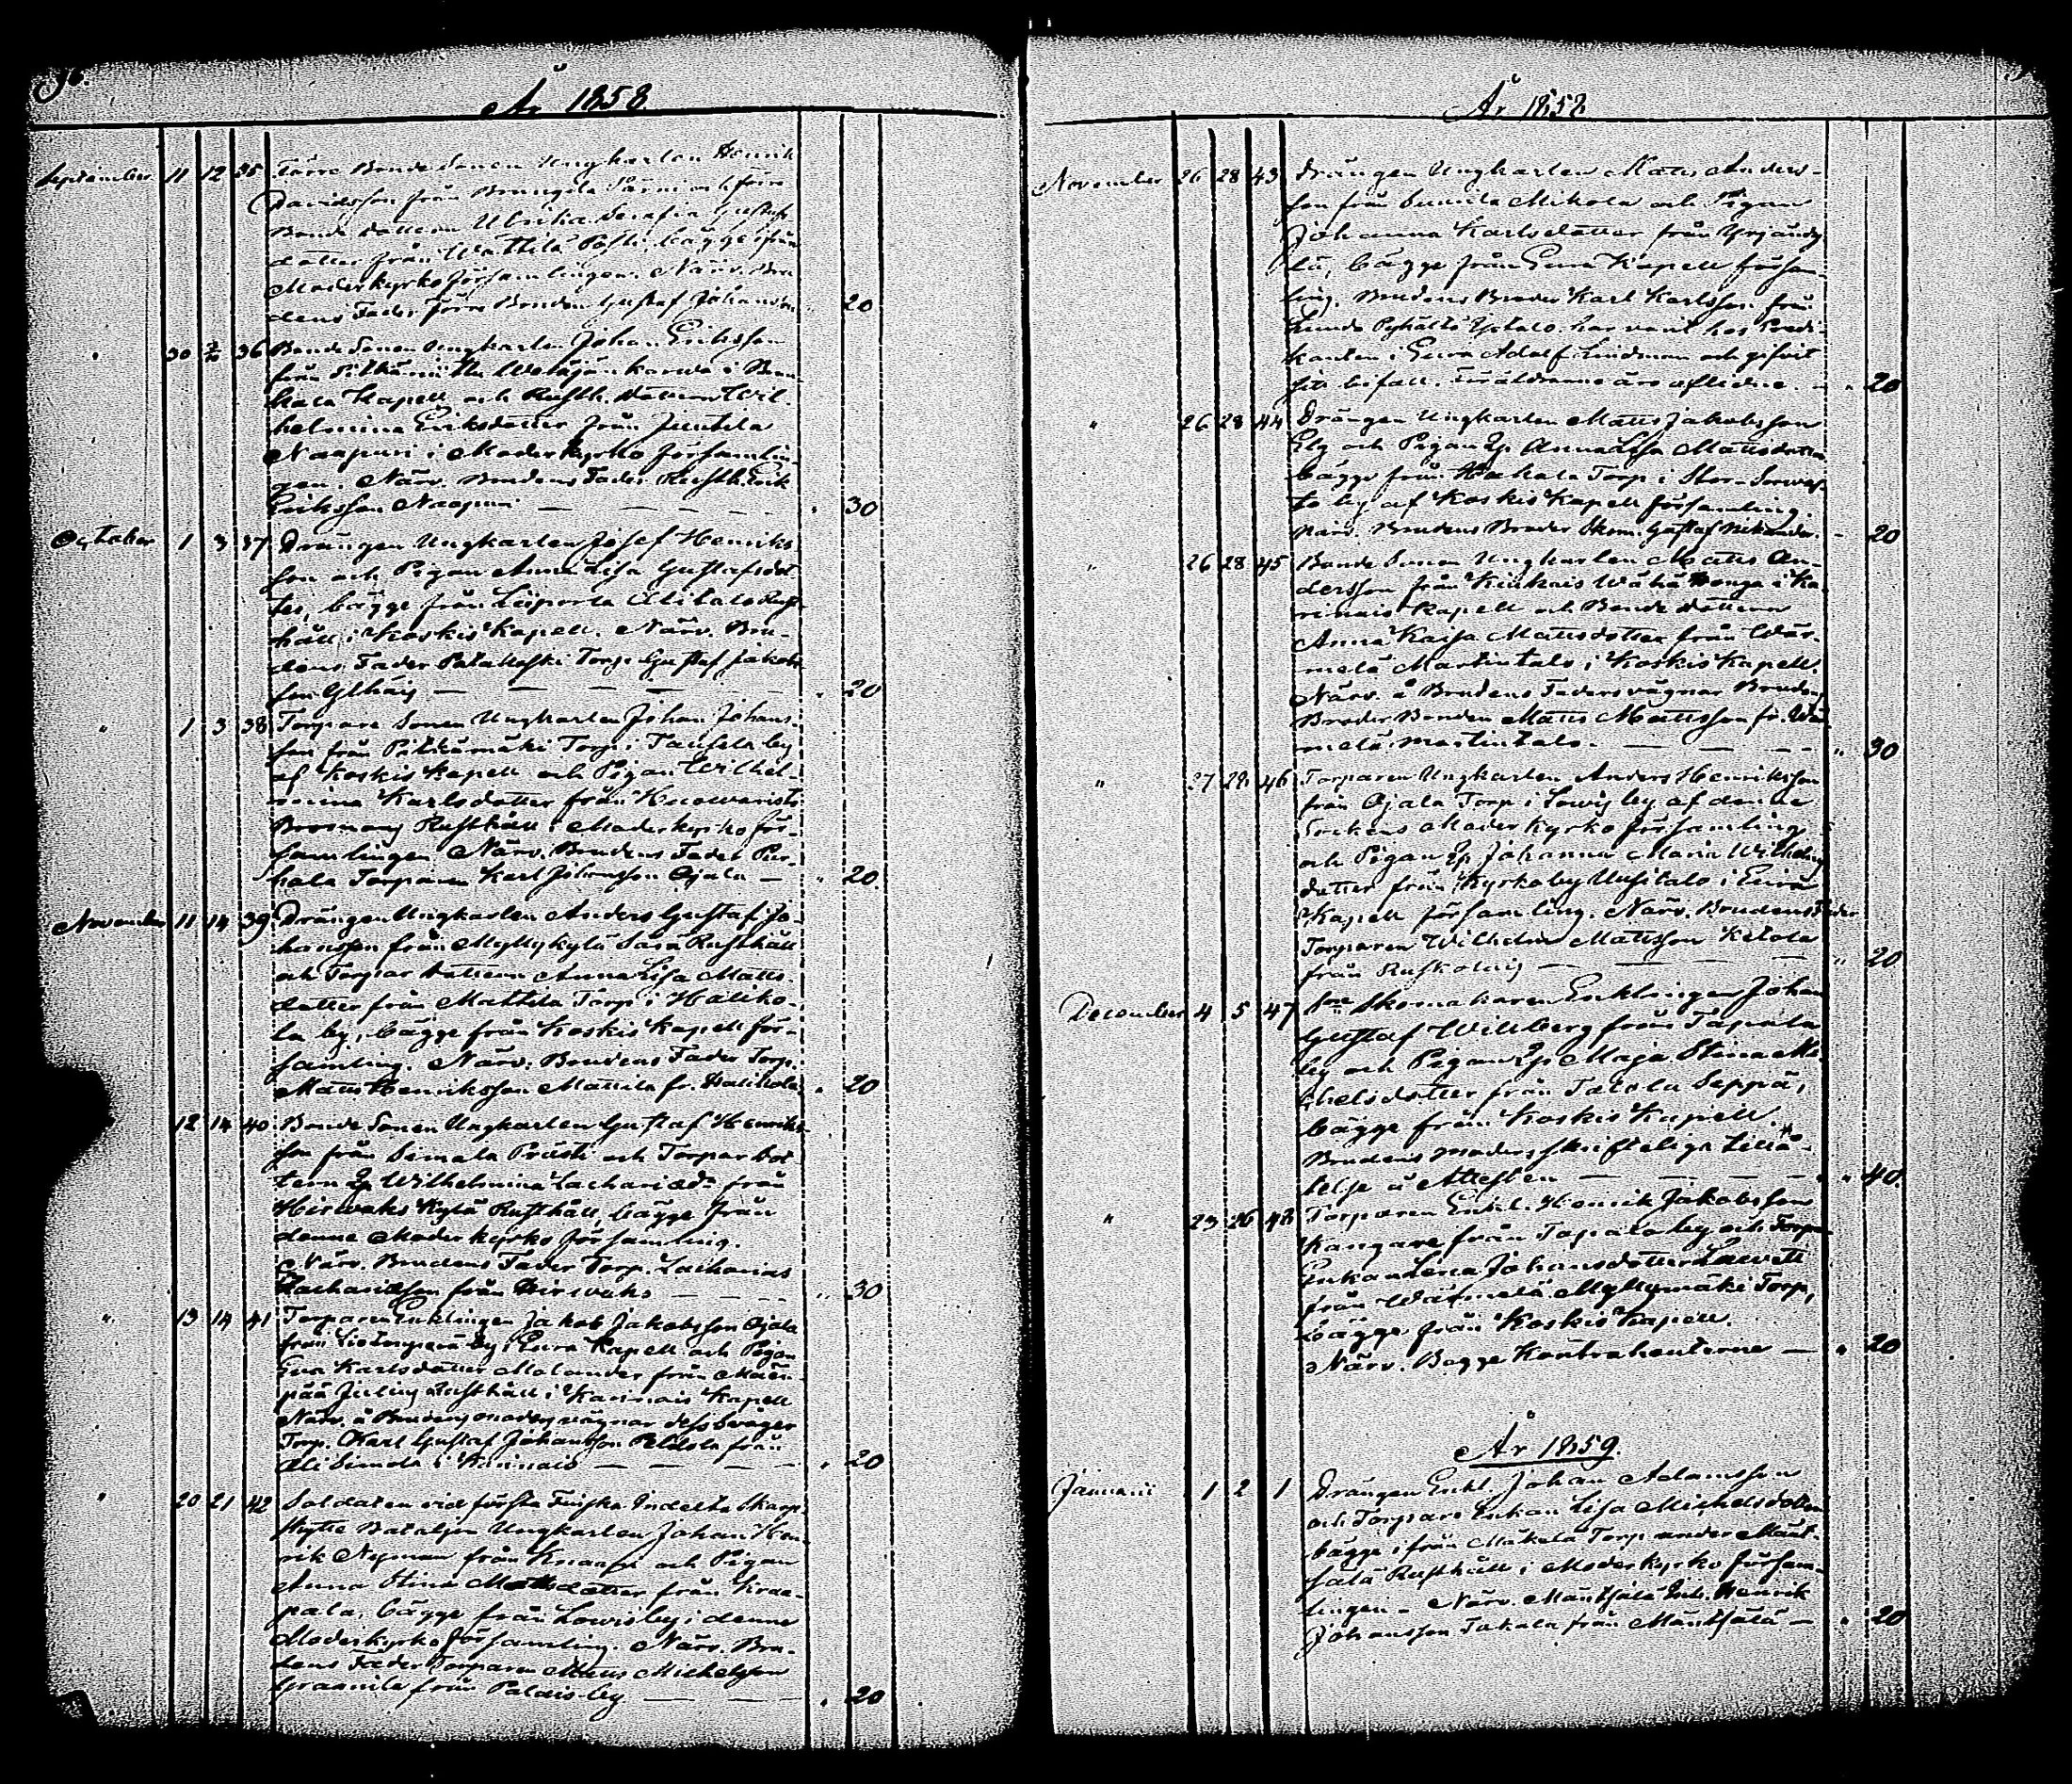 36.
År 1858
September 11 12 35 Förre Bonde Sonen Ungkarlen Henrik
Davidsson från Brungila Särni och förre
Bonde dottern Ulrika Serafia Gustafs
dotter från Wättilä Påsti, bägge ifrån
Moderkyrko församlingen. Närv. Bru
dens Fader förre Bonden Gustaf Johansson 20
" 30 36 Bonde Sonen Ungkarlen Johan Eriksson
från
kala Kapell och Rusth. dottern Wil-
helmina Eriksdotter från Juntila
Naapuri i Moderkyrko församlin-
gen. Närv. Brudens Fader Rusth. Erik
Eriksson Naapuri — " 30
October 1 3 37 Drängen Ungkarlen Josef Henriks
son och Pigan Anna Lisa Gustafsdot-
ter, bägge från Leiporla Alitalo Rust-
håll i Koskis Kapell. Närv. Bru-
dens Fader Torp. Gustaf Jakobs
son — " 20
" 1 3 38 Torpare Sonen Ungkarlen Johan Johans
son från Pitkämäki Torp i Taufsla by
af Koskis Kapell och Pigan Wilhel-
mina Karlsdotter från
Rusthåll i Moderkyrko för-
samlingen. Närv. Brudens Fader Pur-
hala Torparen Karl Johansson Ojala — " 20
November 11 14 39 Drängen Ungkarlen Anders Gustaf Jo-
hansson från Myllykylä Sasa Rusthåll
och Torpar dottern Anna Lisa Matts-
dotter från Mattila Torp i Haliko-
la by, bägge från Koskis Kapell för-
samling. Närv. Brudens Fader Torp.
Matts Henriksson Mattila fr. Halikola " 20
12 14 40 Bonde Sonen Ungkarlen Gustaf Henriks-
son från Simala Prusti och Torpar dot-
tern Ep. Wilhelmina Zachariæd:r från
Hirwaks Kylä Rusthåll, bägge från
denne Moderkyrko församling.
Närv. Brudens Fader Torp. Zacharias
Zachariasson från Hirvaks — " 30
" 13 14 41 Torparen Enklingen Jakob Jakobsson Ojala
från by i Eura Kapell och Pigan
Eva Karlsdotter Molander från Mäen-
pää Rusthåll i Karinais Kapell
Närv. å Brudens moders vägnar dess svåger
Torp. Karl Gustaf Johansson från
i Karinais — " 20
" 20 21 42 Soldaten vid första Finska Indelta Skarp-
skytte Bataljon Ungkarlen Johan Hen-
rik Nyman från Knaapi och Pigan
Anna Stina Mattsdotter från Krae-
pala, bägge från Lowis by i denne
Moderkyrko församling. Närv. Bru-
dens Fader Torparen Matts Michelsson
Graanila från Palais by — " 20
År 1858
November 26 28 43 Drängen Ungkarlen Matts Anders-
son från Sunila Mikola och Pigan
Johanna Karlsdotter från Yrjändy
lä, bägge från Eura Kapell försam-
ling. Brudens Broder Karl Karlsson från
har varit hos Predi-
kanten i Eura Adolf Lindman och gifvit
sitt bifall. Föräldrarne äro aflidne. — " 20
" 26 28 44 Drängen Ungkarlen Matts Jakobsson
Elg och Pigan Ep. Anna Lisa Mattsdotter
bägge från Hakala Torp i Stor-Sorvas-
to by af Koskis Kapell församling.
Närv. Brudens Broder Skom. Gustaf Nikander. — 20
" 26 28 45 Bonde Sonen Ungkarlen Matts An-
dersson från Kiukais Wähä Honga i Ka-
rinais Kapell och Bonde dottern
Anna Kaisa Mattsdotter från Wär-
melä Martintalo i Koskis Kapell.
Närv. å Brudens Faders vägnar Brudens
Broder Bonden Matts Mattsson fr. Wär
melä Martintalo. — " 30
" 27 28 46 Torparen Ungkarlen Anders Henriksson
från Ojala Torp i Lowis by af denne
Sockens Moder Kyrko församling
och Pigan Ep. Johanna Maria Wilhelms
dotter från Kyrkoby Uusitalo i Eura
Kapell församling. Närv. Brudens Fader
Torparen Wilhelm Mattsson Ketola
från — " 20
December 4 5 47 Skomakaren Enklingen Johan
Gustaf Willberg från Tapala
by och Pigan Ep. Maja Stina Mi-
chelsdotter från Tatala Seppä,
bägge från Koskis Kapell
Brudens moders skrifteliga tillå-
telse å Attesten — " 40
" 23 26 48 Torparen Enkl. Henrik Jakobsson
Kangare från Tapala by och Torpare
Enkan Lena Johansdotter Lawett
från Wärmelä Myllymäki Torp,
bägge från Koskis Kapell.
Närv. Begge Kontrahenterne — " 20
År 1859.
Januarii 1 2 1 Drängen Enkl. Johan Adamsson
och Torpare Enkan Lisa Michelsdotter
bägge ifrån Mäkelä Torp under Mänt-
sälä Rusthåll i Moderkyrko församl-
lingen. — Närv. Mäntsälä Henrik
Johansson Takala från Mäntsälä — " 20